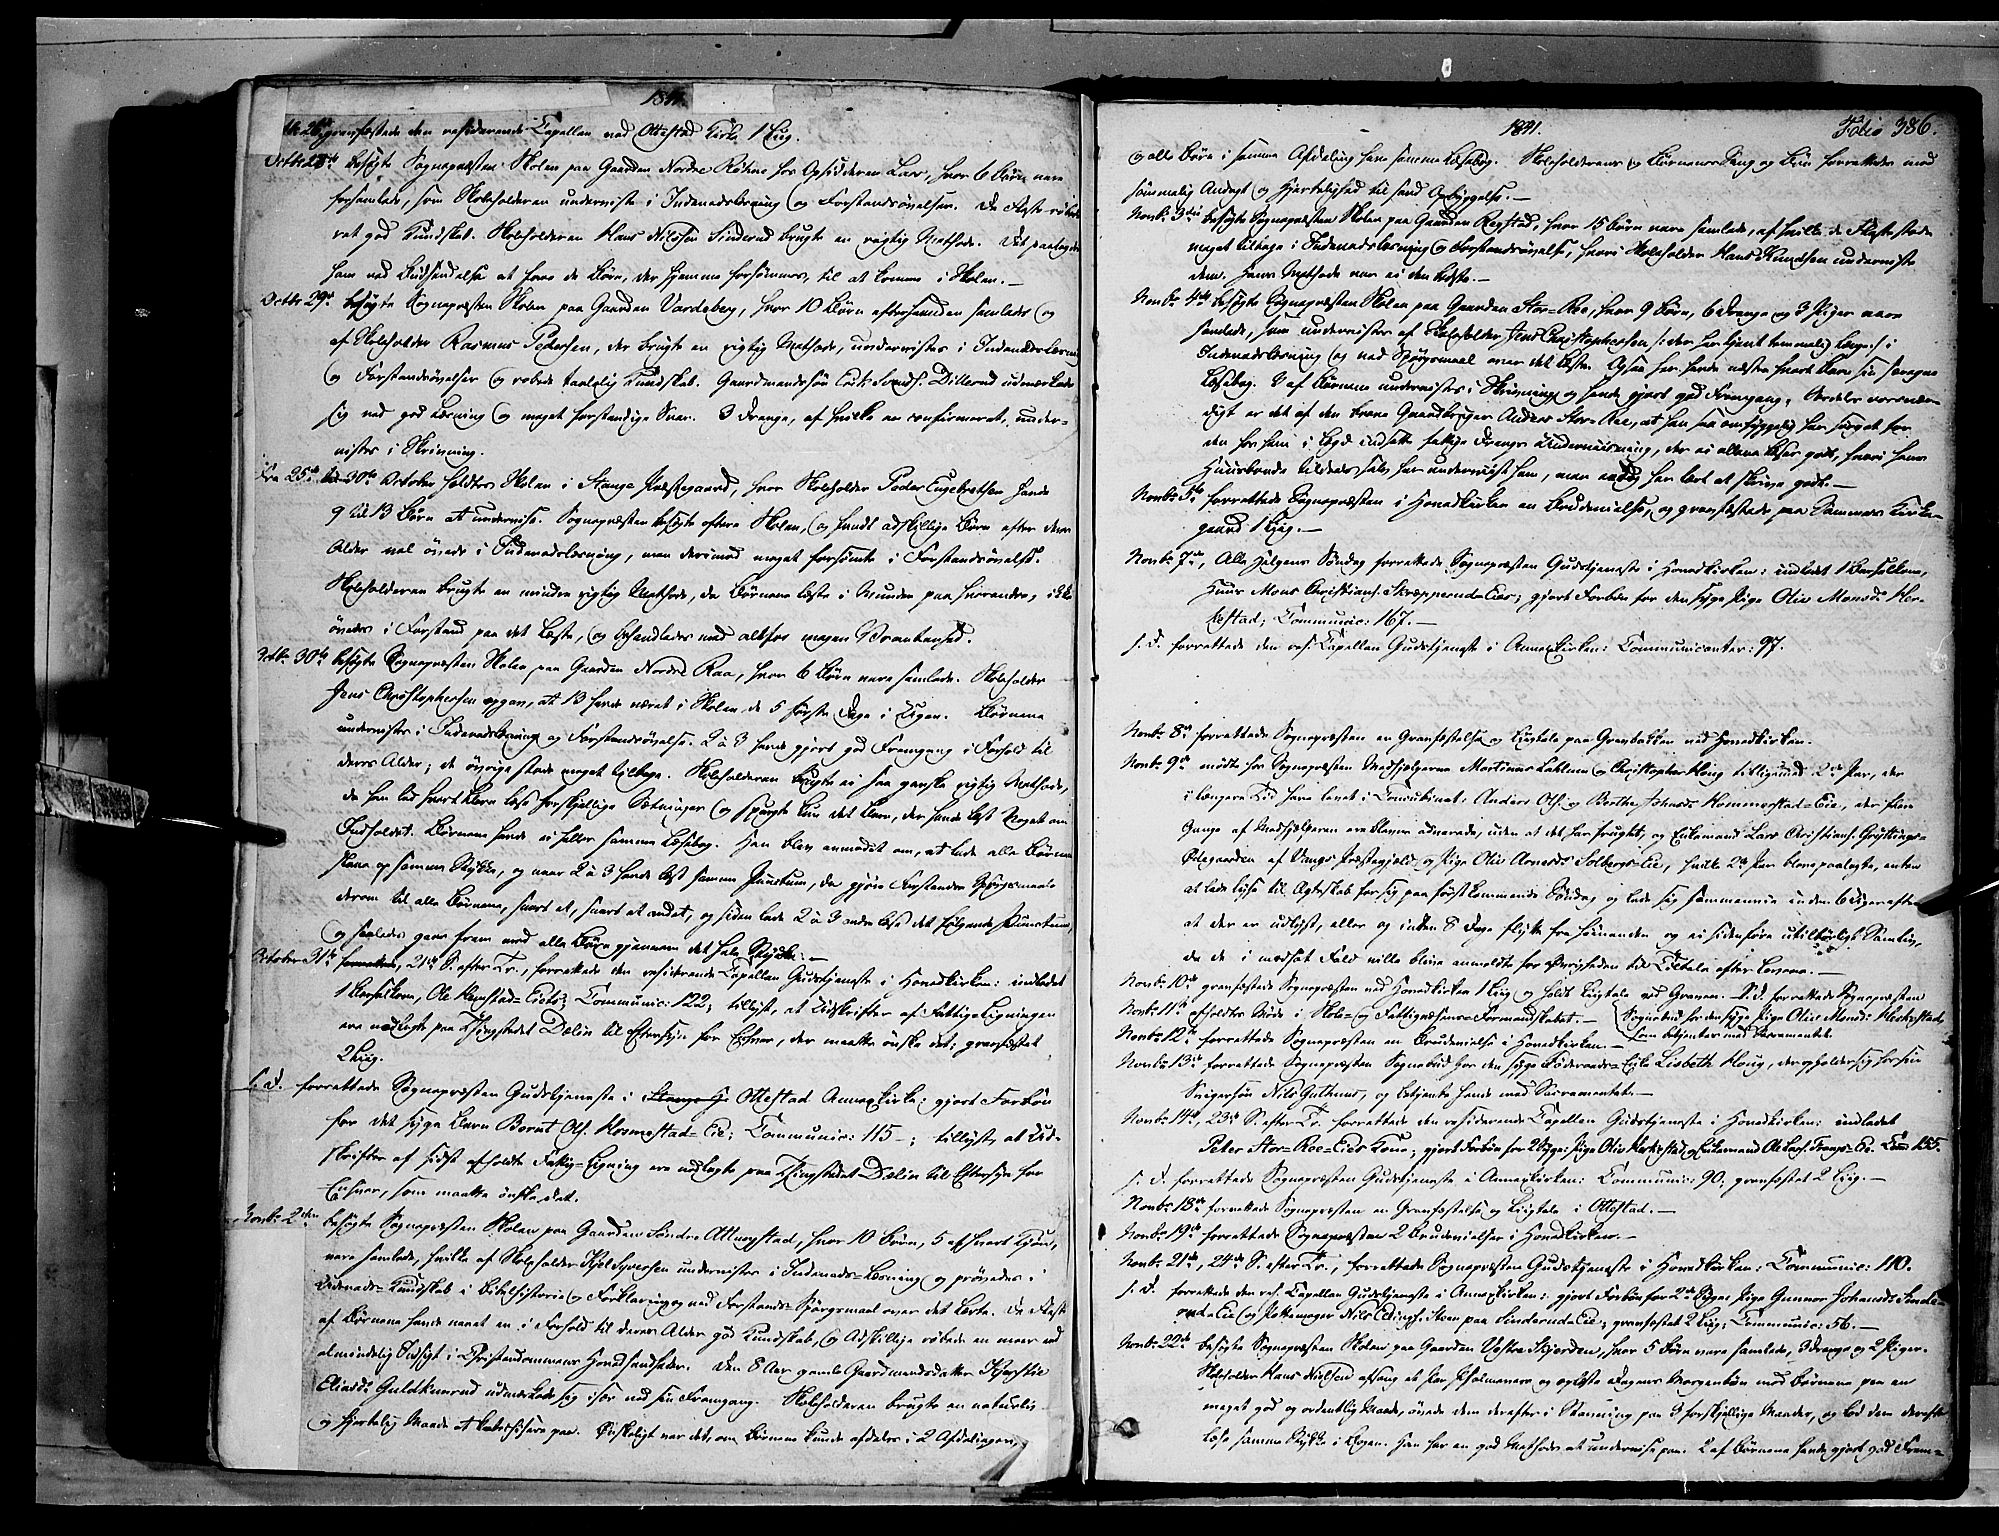 1841.
26de grævfæstede den residerende Capellan ved Ottestad Kirke 1 Liig.
Octbr 28de besøgte Sognepræsten Skolen paa Gaarden Nordre Røhne hos Opsidderen Lars, hvor 6 Børn vare
forsamlede, som Skoleholderen underviste i Indenadslæsning og Forstandsøvelser. De fleste røbede
ret god Kundskab. Skoleholderen Hans Nilssen Sinderud brugte en rigtig Methode. Det paalagdes
ham ved Budsendelse at faae de Børn, der hjemme forsømmes, til at komme i Skolen.—
Octbr 29de besøgte Sognepræsten Skolen paa Gaarden Vardeberg, hvor 10 Børn efterhaanden samledes og
af Skoleholder Rasmus Pedersen, der brugte en rigtig Methode, undervistes i Indenadslæsning
og Forstandsøvelser og røbede taalelig Kundskab. Gaardmandssøn Erik Svends. Dillerud udmærkede
sig ved god Læsning og meget forstandige Svar. 3 Drenge, af hvilke en confirmeret, under-
vistes i Skrivning.
Fra 25de til 30te October holdtes Skolen i Stange Præstegaard, hvor Skoleholder Peder Engebretsen havde
9 til 13 Børn at undervise. Sognepræsten besøgte oftere Skolen, og fandt adskillige Børn efter deres
Alder vel øvede i Indenadslæsning, men derimod meget forsømte i Forstandsøvelse.
Skoleholderen brugte en mindre rigtig Methode, da Børnene læste i Munden paa hverandre, ikke
øvedes i Forstand paa det Læste, og behandledes med altfor megen Strænghed.
Octbr 30te besøgte Sognepræsten Skolen paa Gaarden Nordre Raa, hvor 6 Børn vare samlede. Skoleholder
Jens Christophersen opgav, at 13 havde været i Skolen de 5 første Dage i Ugen. Børnene
undervistes i Indenadslæsning og Forstandsøvelse. 2 à 3 havde gjort god Fremgang i Forhold til
deres Alder; de øvrige stode meget tilbage. Skoleholderen brugte ei saa ganske rigtig Methode,
da han lod hvert Barn læse forskjellige Sætninger og spurgte kun det Barn, der havde læst Noget om
Indholdet. Børnene havde ei heller samme Læsebog. Han blev anmodet om, at lade alle Børnene
slaae op samme Stykke, og naar 2 à 3 havde læst samme Punctum, da gjøre Forstands Spørgsmaale
derom til alle Børnene, snart et, snart et andet, og siden lade 2 à 3 andre læse det følgende Punctum,
og saaledes gaae frem med alle Børn gjennem det hele Stykke.—
October 31te, 21de S. efter Tr., forrettede den residerende Capellan Gudstjeneste i Hovedkirken: indledet
1 Barselkone, Ole Hemstad-Eiets; Communic: 122; tillyst, at Udskrifter af Fattigligningen
ere nedlagte paa Thingstedet Dælin til Eftersyn for Enhver, der maatte ønske det; grævfæstet
2 Liig.
s. D. forrettede Sognepræsten Gudstjeneste i Ottestad Annexkirke: gjort Forbøn
for det syge Barn Bernt Ols. Hosmestad-Eie; Communic: 115—; tillyst, at Ud-
skrifter af sidst afholdte Fattig-Ligning ere nedlagte paa Thingstedet Dælin til Eftersyn for
Enhver, som maatte ønske det.
Novbr 2den besøgte Sognepræsten Skolen paa Gaarden Søndre Attingstad, hvor 10 Børn, 5 af hvert Kjøn,
vare samlede, hvilke af Skoleholder Kjel Syversen undervistes i Indenads-Læsning og prøvedes i
Udenads-Kundskab i Bibelhistorie og Forklaring og ved Forstands-Spørgsmaal over det Læste. De fleste
af Børnene havde nævnt en i Forhold til deres Alder god Kundskab, og Adskillige røbede en meer end
almindelig Indsigt i Christendommens Hovedsandheder. Den 8 Aar gamle Gaardmandsdatter Kjerstie
Eliasd: Guldknerud udmærkede sig især ved sin Fremgang. Skoleholderen brugte en naturlig
og hjertelig Maade at katechisere paa. Ønskeligt var det, om Børnene kunde afdeles i 2 Afdelinger,
1841.
Folio 386.
og alle Børn i samme Afdeling have samme Læsebog. Skoleholderens og Børnenes Sang og Bøn forrettedes med
sømmelig Andagt og Hjertelighed til sand Opbyggelse.—
Novbr 3die besøgte Sognepræsten Skolen paa Gaarden Ragstad, hvor 15 Børn vare samlede, af hvilke de fleste stode
meget tilbage i Indenadslæsning og Forstandsøvelse, hvori Skoleholder Hans Knudsen underviste
dem. Hans Methode var ei den bedste.—
Novbr 4de besøgte Sognepræsten Skolen paa Gaarden Stor-Ree, hvor 9 Børn, 6 Drenge og 3 Piger vare
samlede, som undervistes af Skoleholder Jens Christophersen /: der har tjent temmelig længe :/ i
Indenadslæsning og ved Spørgsmaal over det Læste. Ogsaa her havde næsten hvert Barn sin særegne
Læsebog. 2 af Børnene undervistes i Skrivning og havde gjort god Fremgang. Særdeles værd-
digt er det af den brave Gaardbruger Anders Stor-Ree, at han saa omhyggelig har sørget for
den hos ham i Lægd indsatte fattige Drengs Underviisning, der ei allene læser godt, hvori hans
Huusbonde tildeels selv har underviist ham, men endog har lært at skrive godt.—
Novbr 5te forrettede Sognepræsten i Hovedkirken en Brudevielse, og grævfæstede paa Sammes Kirke-
gaard 1 Liig.—
Novbr 7de, Alle Helgens Søndag forrettede Sognepræsten Gudstjeneste i Hovedkirken: indledet 1 Barselkone,
Huusm. Mons Christians. Skræpperud-Eies; gjort Forbøn for den syge Pige Olive Monsd: Her-
kestad; Communic: 167.—
s. D. forrettede den res. Capellan Gudstjeneste i Annexkirken: Communicanter: 97.
Novbr 8de forrettede Sognepræsten en Grævfæstelse og Liigtale paa Gravbakken ved Hovedkirken.
Novbr 9de mødte hos Sognepræsten Medhjælperne Martinus Lahlum og Christopher Houg tilligemed 2de Par, der
i længere Tid have levet i Concubinat: Anders Ols. og Berthe Johnsd. Hommerstad-Eie, der flere
Gange af Medhjelperen ere blevne advarede, uden at det har frugtet, og Enkemand Lars Christians. Gryttings-
Ødegaarden af Vangs Præstegjeld og Pige Olive Arnesd: Solbergs-Eie, hvilke 2de Par bleve paalagte, enten
at lade lyse til Ægteskab for sig paa førstkommende Søndag og lade sig sammenvie inden 6 Uger efter
at der er udlyst, eller og inden 8 Dage flytte fra hinanden og ei siden føre utilbørligt Samliv,
da de i modsat Fald ville blive anmeldte for Øvrigheden til Tiltale efter Lovene.—
Novbr 10de grævfæstede Sognepræsten ved Hovedkirken 1 Liig og holdt Liigtale ved Graven.— S. D. forrettede Sognepræsten
Novbr 11te afholdtes Møde i Skole- og Fattigvæsens-Formandskabet.— Sognebud for den syge Pige Olive Monsd: Herkestad,
Novbr 12te forrettede Sognepræsten en Brudevielse i Hovedkirken.— som betjentes med Sacramentet.
Novbr 13de forrettede Sognepræsten Sognebud hos den syge Føderaads-Enke Lisbeth Houg, der opholder sig hos sin
Svigersøn Nils Guthuus, og betjente hende med Sacramentet.—
Novbr 14de, 23de S. efter Tr. forrettede den residerende Capellan Gudstjeneste i Hovedkirken: indledet
Peter Stor-Ree-Eies Kone; gjort Forbøn for 2 Syge: Pige Olive Herkestad og Enkemand Ole Lars. Frangs-Eie. Com 155.
s. D. forrettede Sognepræsten Gudstjeneste i Annexkirken: Communic: 90. grævfæstet 2 Liig.—
Novbr 18de forrettede Sognepræsten en Grævfæstelse og Liigtale i Ottestad.—
Novbr 19de forrettede Sognepræsten 2 Brudevielser i Hovedkirken.—
Novbr 21de, 24de S. efter Tr., forrettede Sognepræsten Gudstjeneste i Hovedkirken: Communic: 110.
s. D. forrettede den res. Capellan Gudstjeneste i Annexkirken: gjort Forbøn for 2de Syge: Pige Gunnor Johansd: Sinde-
ruds-Eie og Pottemager Nils Elingsf. Aven paa Sinderud-Eie; grævfæstet 2 Liig; Communic: 56.—
Novbr 22de besøgte Sognepræsten Skolen paa Gaarden Vestre Skjerden, hvor 5 Børn vare samlede, 3 Drenge og 2 Piger.
Skoleholder Hans Nielsen afsang et Par Psalmevers og oplæste Dagens Morgenbøn med Børnene paa en
meget god og ordentlig Maade, øvede dem derefter i Stavning paa 3 forskjellige Maader, og lod dem derefter
læse samme Stykke i Bogen. Han har en god Methode at undervise paa. 2 af Børnene havde gjort god Frem-